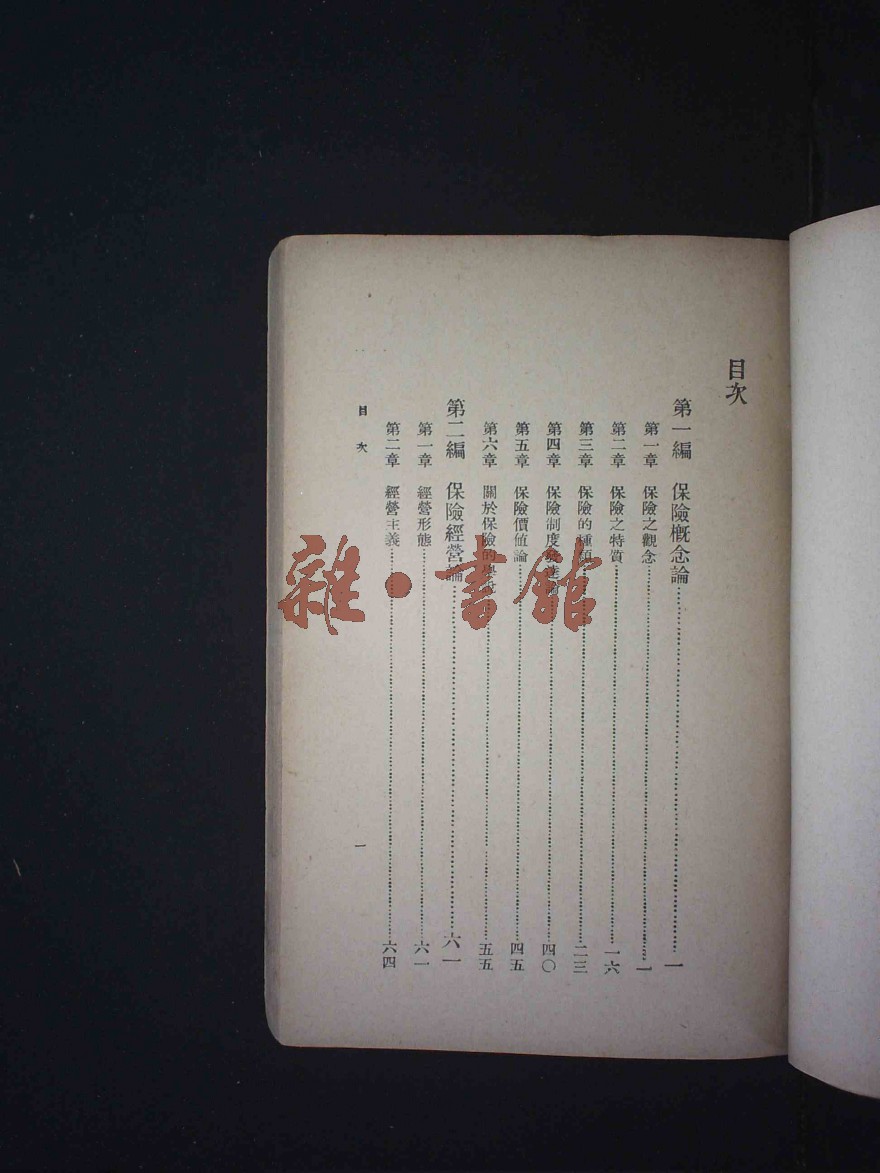 目次
第一編　保險概念論……一
第一章　保險之觀念……一
第二章　保險之特質……一六
第三章　保險的種類……二三
第四章　保險制度發達……四〇
第五章　保險價值論……四五
第六章　關於保險的學……五五
第二編　保險經營論……六一
第一章　經營形態……六一
第二章　經營主義……六四
目次
一
雜·書館